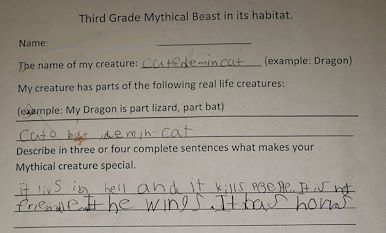 Third Grade Mythical Beast in its habitat.
Name:
The name of my creature: Cutedemincat (example: Dragon)
My creature has parts of the following real life creatures:
(example: My Dragon is part lizard, part bat)
Cute demin-cat
Describe in three or four complete sentences what makes your
Mythical creature special.
it livs in hell and it kills It is not
It he wings. It has horns